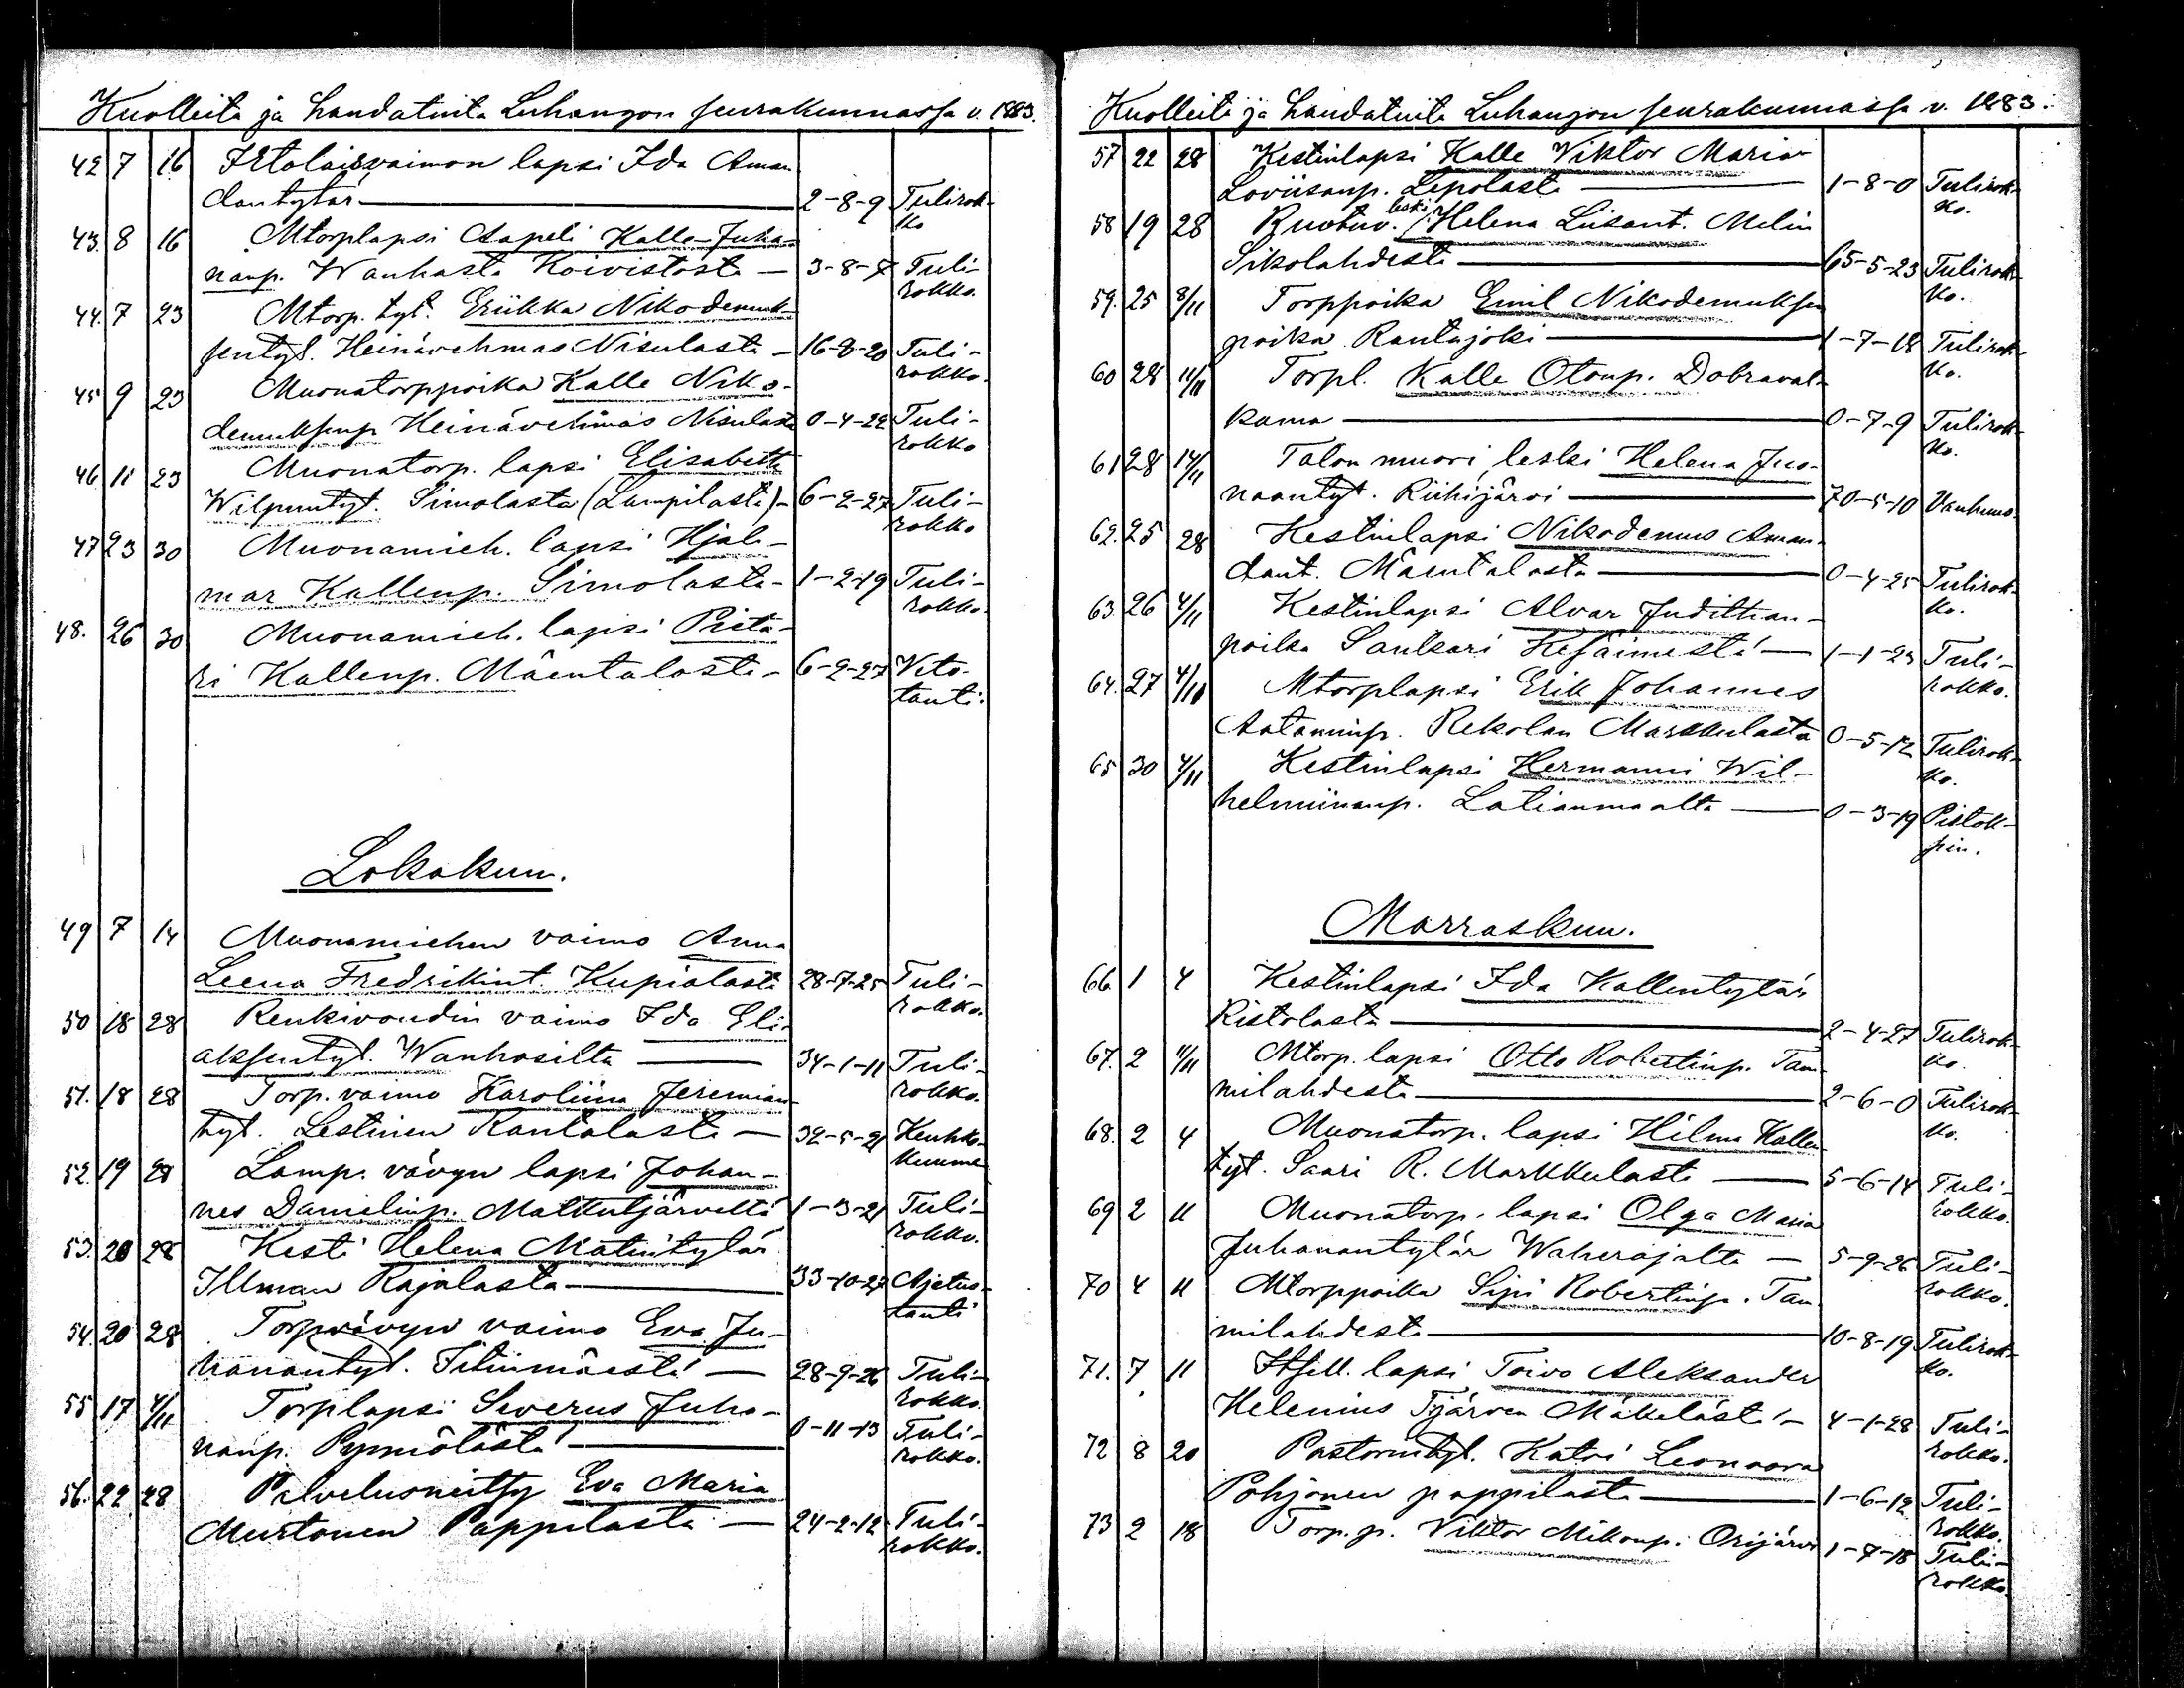 Kuolleita ja haudatuita Luhangon seurakunnassa v. 1883.
42 7 16 Itolaisvaimon lapsi Ida Aman-
dantytär — 2-8-9 Tulirok-
ko
43. 8 16 Mtorplapsi Aapeli Kalle Juha-
nanp. Wanhasta Koivistosta — 3-8-7 Tuli-
rokko.
44. 7 23 Mtorp. tyt. Eriikka Nikodemuk-
sentyt. Heinävehmas Nisulasta — 16-8-20 Tuli-
rokko.
45 9 23 Muonatorppoika Kalle Niko-
demuksenp Heinävehmas Nisulasta 0-4-22 Tuli-
rokko
46 11 23 Muonatorp. lapsi Elisabetta
Wilpuntyt. Simolasta (Lampilasta) — 6-2-27 Tuli-
rokko
47 23 30 Muonamieh. lapsi Hjal-
mar Kallenp. Simolasta — 1-2-19 Tuli-
rokko.
48. 26 30 Muonamieh. lapsi Pieta-
ri Kallenp. Mäentalosta — 6-2-27 Veto-
tauti.
Lokakuu.
49 7 14 Muonamiehen vaimo Anna
Leena Fredrikint. Kupialasta 28-7-25 Tuli-
rokko.
50 18 28 Renkivoudin vaimo Ida Eli-
aksentyt. Wanhasilta — 34-1-11 Tuli-
rokko.
51. 18 28 Torp. vaimo Karoliina Jeremian-
tyt. Lestinen Rantalasta — 32-5-21 Keuhko-
kuume
52. 19 28 Lamp. vävyn lapsi Johan-
nes Danielinp. Mattutjärveltä 1-3-21 Tuli-
rokko.
53. 20 28 Kesti Helena Matintytär
Illman Rajalasta — 33-10-27 Ajetus-
tauti
54. 20 28 Torpvävyn vaimo Eva Ju-
hanantyt. Tetinmäestä — 28-9-26 Tuli-
rokko.
55 17 4/11 Torplapsi Severus Juha-
nanp. Pynnölästä — 0-11-13 Tuli-
rokko.
56. 22 28 Palvelusneitsy Eva Maria
Murtonen Pappilasta — 24-2-12 Tuli-
rokko.
Kuolleita ja haudatuita Luhangon seurakunnassa v. 1883.
57 22 28 Kestinlapsi Kalle Viktor Maria
Loviisanp. Lepolasta — 1-8-0 Tulirok-
ko.
58 19 28 Ruotuv. leski Helena Liisant. Melin
Sikolahdesta — 65-5-23 Tulirok-
ko.
59. 25 8/11 Torppoika Emil Nikodemuksen
poika Rantajoki — 1-7-18 Tulirok-
ko.
60 28 11/11 Torpl. Kalle Otonp. Dobraval-
kama — 0-7-9 Tulirok-
ko.
61 28 14/11 Talon muori leski Helena Juo-
naantyt. Riihijärvi — 70-5-10 Vanhuus.
62. 25 28 Kestinlapsi Nikodemus Aman-
dant. Mäentalosta — 0-4-25 Tulirok-
ko.
63 26 4/11 Kestinlapsi Alvar Judithan-
poika Sankari — 1-1-23 Tuli-
rokko.
64. 27 4/11 Mtorplapsi Erik Johannes
Aataminp. Rekolan Markkulasta 0-5-12 Tulirok-
ko.
65 30 4/11 Kestinlapsi Hermanni Wil-
helmiinanp. Latianmaalta — 0-3-19 Pistok-
sin.
Marraskuu.
66. 1 4 Kestinlapsi Ida Kallentytär
Ristolasta — 2-4-27 Tulirok-
ko.
67. 2 11/11 Mtorp. lapsi Otto Robertinp. Tam-
milahdesta — 2-6-0 Tulirok-
ko.
68. 2 4 Muonatorp. lapsi Hilma Kallen-
tyt. Saari R. Markkulasta — 5-6-14 Tuli-
rokko.
69 2 11 Muonatorp. lapsi Olga Maria
Juhanantytär Waherajalta — 5-9-26 Tuli-
rokko.
70 4 11 Mtorppoika Sipi Robertinp. Tam-
milahdesta — 10-8-19 Tulirok-
ko.
71. 7 11 Itsell. lapsi Toivo Aleksander
Helenius Tjärven Mäkelästä — 4-1-28 Tuli-
rokko.
72 8 20 Pastorintyt. Katri Leonoora
Pohjonen pappilasta — 1-6-12 Tuli-
rokko.
73 2 18 Torp. p. Viktor Mikonp. Orijärvi 1-7-18 Tuli-
rokko.